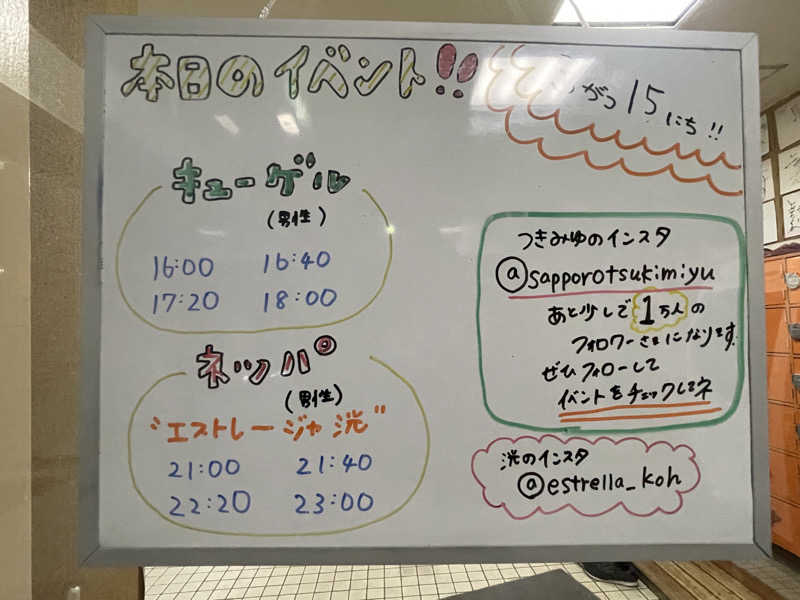 本日のイベント!!
がつ15にち!!
キューゲル
(男性)
16:00 16:40
17:20 18:00
ネッパ°
(男性)
"エストレージャ 洸"
21:00 21:40
22:20 23:00
つきみゆのインスタ
@sapporotsukimiyu
あと少しで1万人の
フォロワーさまになります。
ぜひフォローして
イベントをチェックしてネ
洸のインスタ
@estrella_koh